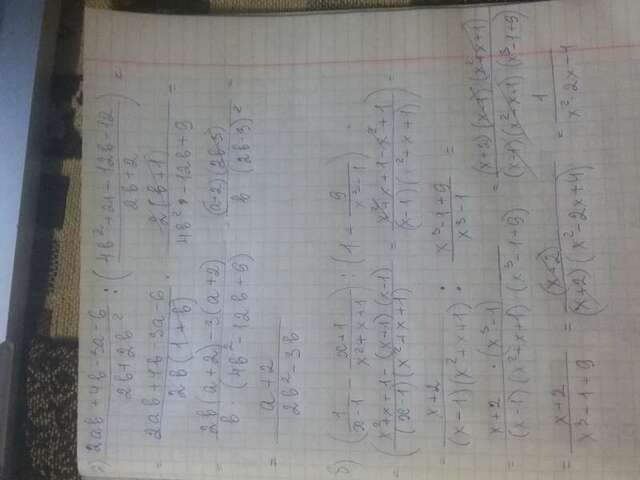 а) (2ab+4b-3a-6)/(2b+2b²) : ((4b²+21-12b-12)/(2b+2)) =
= (2ab+4b-3a-6)/(2b(1+b)) · (2(b+1))/(4b²-12b+9) =
= (2b(a+2)-3(a+2))/(b·(4b²-12b+9)) = ((a+2)(2b-3))/(b(2b-3)²) =
= (a+2)/(2b²-3b)
б) (1/(x-1) - (x+1)/(x²+x+1)) : (1+9/(x³-1)) =
= ((x²+x+1-(x+1)(x-1))/((x-1)(x²+x+1)) = (x²+x+1-x²+1)/((x-1)(x²+x+1))) =
= (x+2)/((x-1)(x²+x+1)) : (x³-1+9)/(x³-1) =
= (x+2·(x³-1))/((x-1)(x²+x+1)·(x³-1+9)) = ((x+2)(x-1)(x²+x+1))/((x-1)(x²+x+1)(x³-1+9))
= (x+2)/(x³-1+9) = (x+2)/((x+2)(x²-2x+4)) = 1/(x²-2x-4)